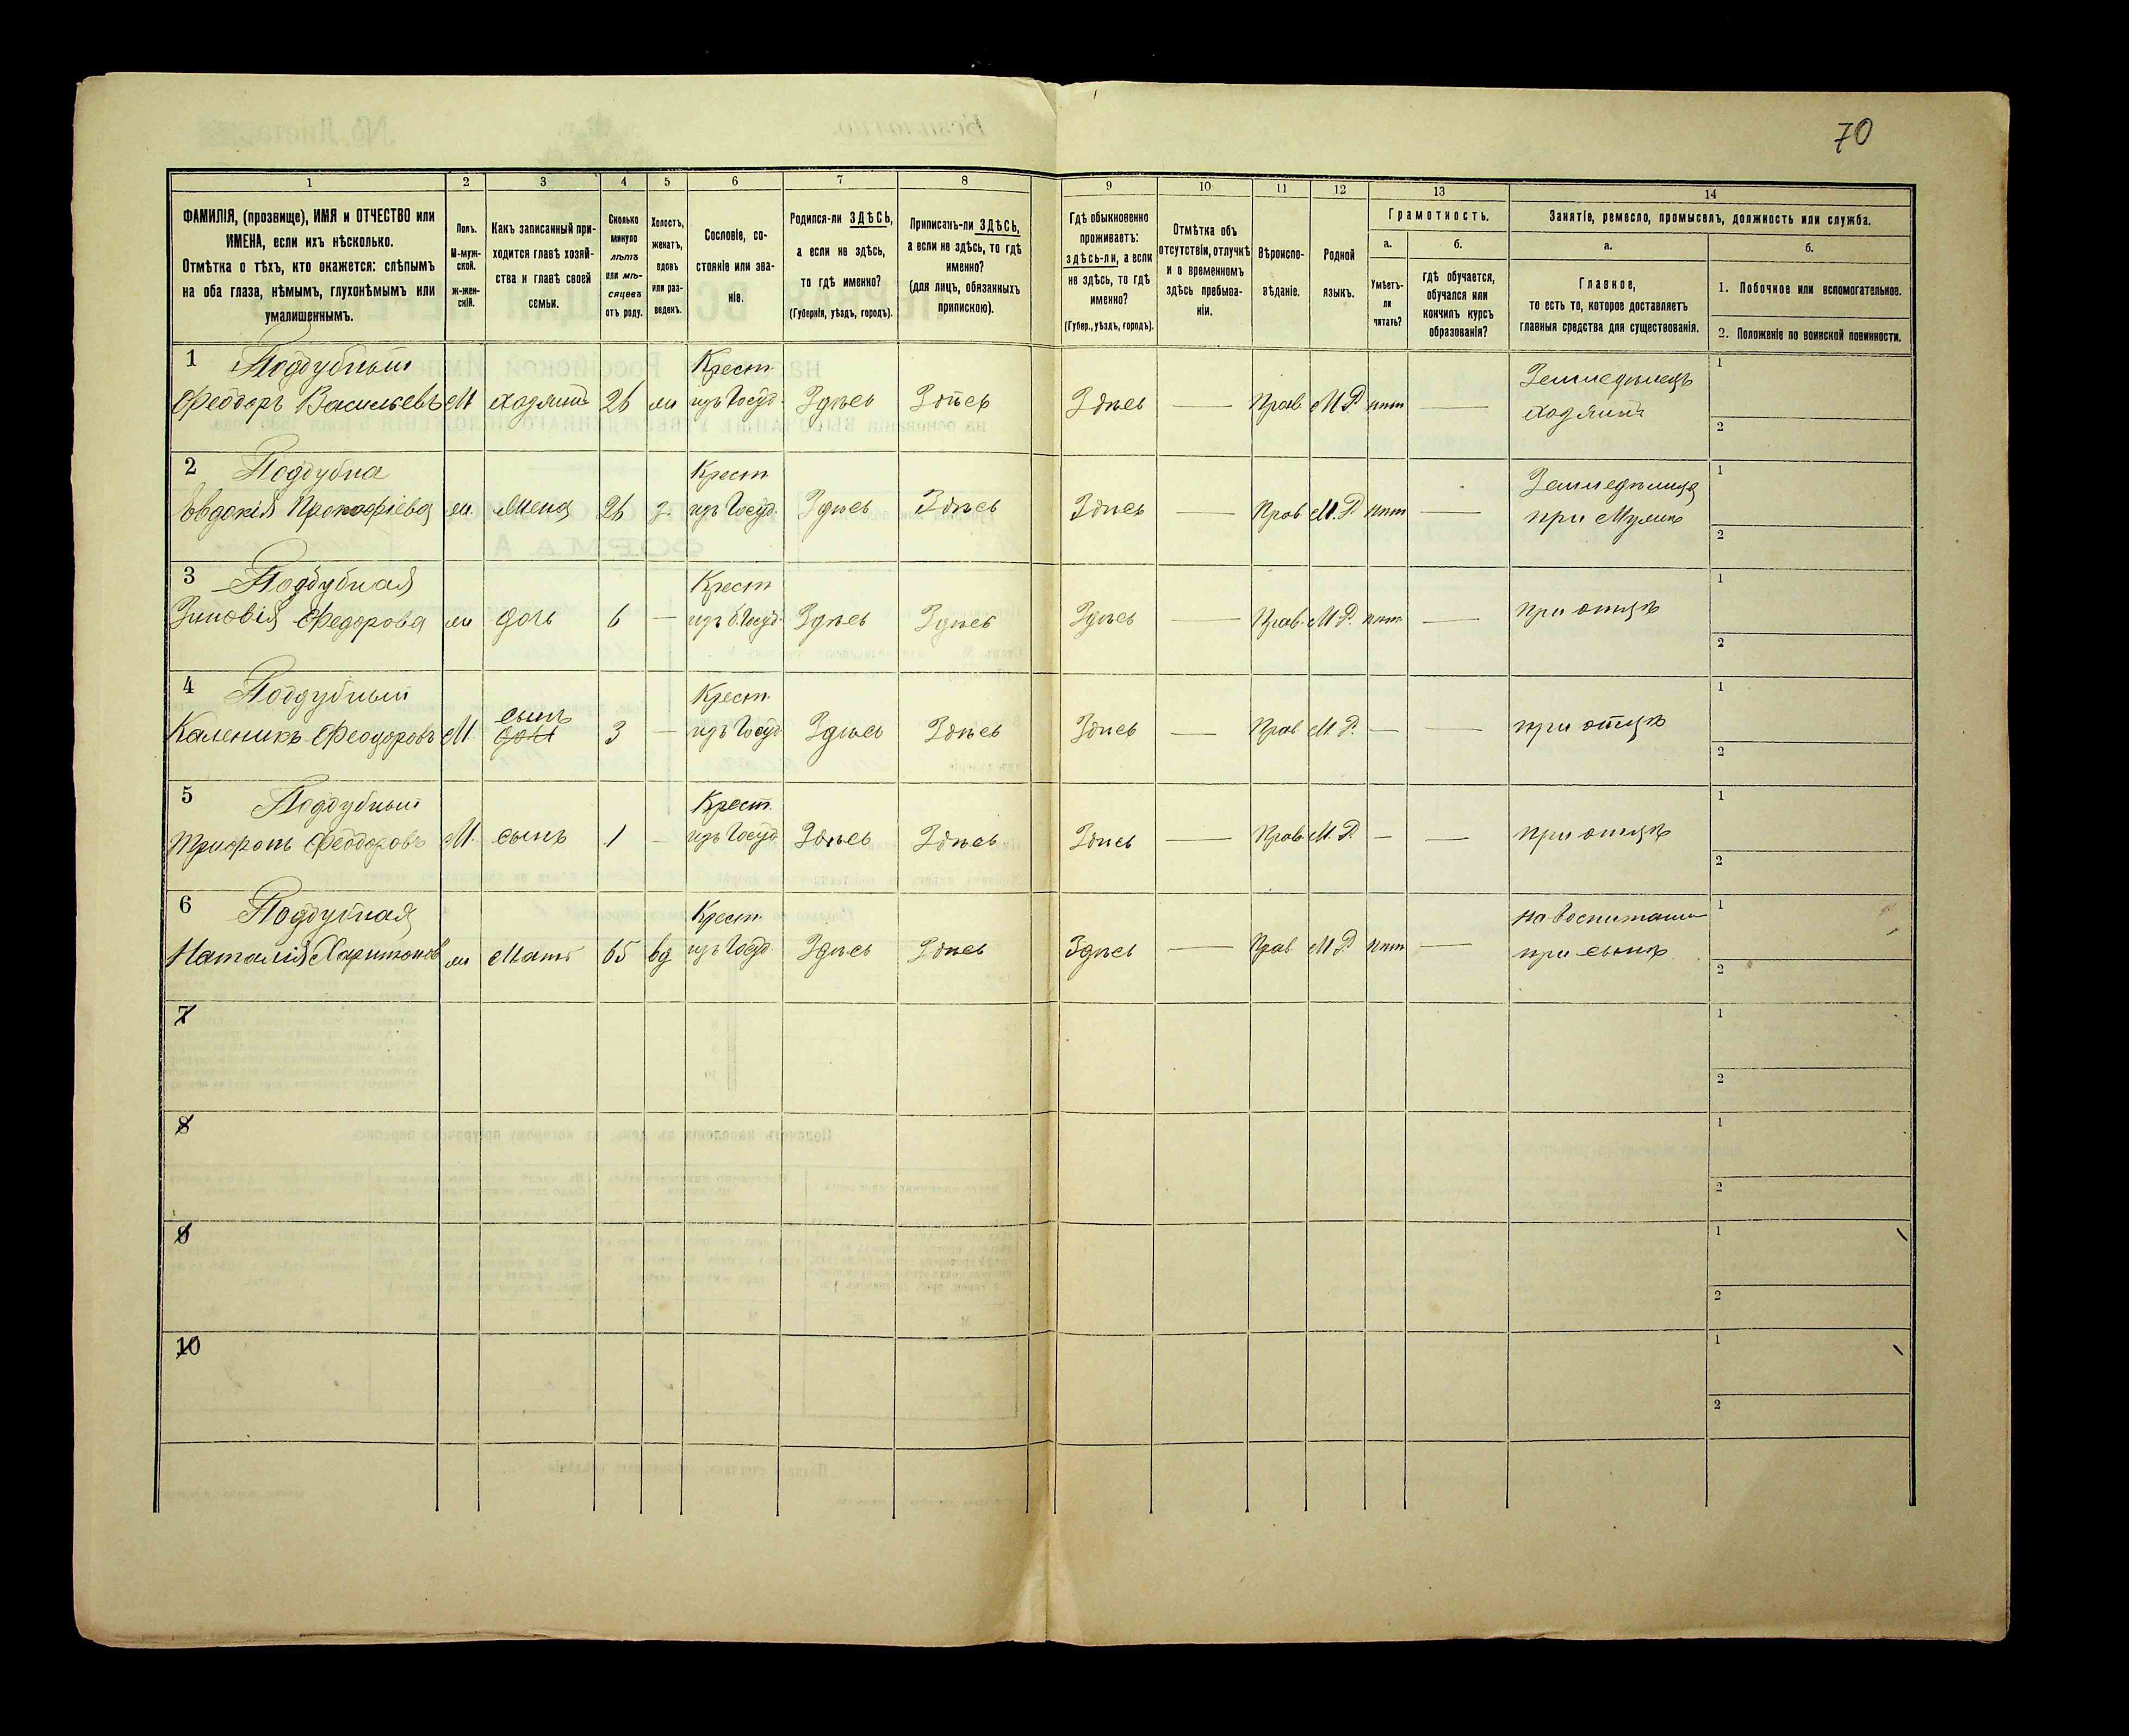 70
1 2 3 4 5 6 7 8 9 10 11 12 13 14
ФАМИЛІЯ, (прозвище), ИМЯ и ОТЧЕСТВО или
ИМЕНА, если ихъ нѣсколько.
Отмѣтка о тѣхъ, кто окажется: слѣпымъ
на оба глаза, нѣмымъ, глухонѣмымъ или
умалишеннымъ.
Полъ.
М-муж-
ской.
ж-жен-
скій.
Какъ записанный при-
ходится главѣ хозяй-
ства и главѣ своей
семьи.
Сколько
минуло
лѣтъ
или мѣ-
сяцевъ
отъ роду.
Холостъ,
женатъ,
вдовъ
или раз-
веденъ.
Сословіе, со-
стояніе или зва-
ніе.
Родился-ли ЗДѢСЬ,
а если не здѣсь,
то гдѣ именно?
(Губернія, уѣздъ, городъ).
Приписанъ-ли ЗДѢСЬ,
а если не здѣсь, то гдѣ
именно?
(для лицъ, обязанныхъ
припискою).
Гдѣ обыкновенно
проживаетъ:
здѣсь-ли, а если
не здѣсь, то гдѣ
именно?
(Губер., уѣздъ, городъ).
Отмѣтка объ
отсутствіи, отлучкѣ
и о временномъ
здѣсь пребыва-
ніи.
Вѣроиспо-
вѣданіе.
Родной
языкъ.
Грамотность.
а.
Умѣетъ-
ли
читать?
б.
гдѣ обучается,
обучался или
кончилъ курсъ
образованія?
Занятіе, ремесло, промыселъ, должность или служба.
а.
Главное,
то есть то, которое доставляетъ
главныя средства для существованія.
б.
1. Побочное или вспомогательное.
2. Положеніе по воинской повинности.
1 Поддубный Крест. Земледѣлецъ 1
Феодоръ Васильевъ М хозяинъ 26 ж изъ Госуд. Здѣсь Здѣсь Здѣсь — Прав. М.Р. нѣт — хозяинъ 2
2 Поддубна Крест. Земледѣлица 1
Евдокія Прокофіева ж жена 26 з. изъ Госуд. Здѣсь Здѣсь Здѣсь — Прав М.Р. нѣт — при Мужѣ 2
3 Поддубная Крест 1
Зиновія Федорова ж дочь 6 — изъ б. Госуд. Здѣсь Здѣсь Здѣсь — Прав. М.Р. нѣт — при отцѣ 2
4 Поддубный сынъ Крест. 1
Каленикъ Феодоровъ М дочь 3 — изъ Госуд Здѣсь Здѣсь Здѣсь — Прав М.Р. — — при отцѣ 2
5 Поддубный Крест. 1
Трифонъ Феодоровъ М. сынъ 1 — изъ Госуд Здѣсь Здѣсь Здѣсь — Прав. М.Р. — — при отцѣ 2
6 Поддубная Крест. на воспитании 1
Наталія Харитонов ж Мать 65 вд изъ Госуд Здѣсь Здѣсь Здѣсь — Прав М.Р. нѣт — при сынѣ 2
7 1
2
8 1
2
9 1
2
10 1
2